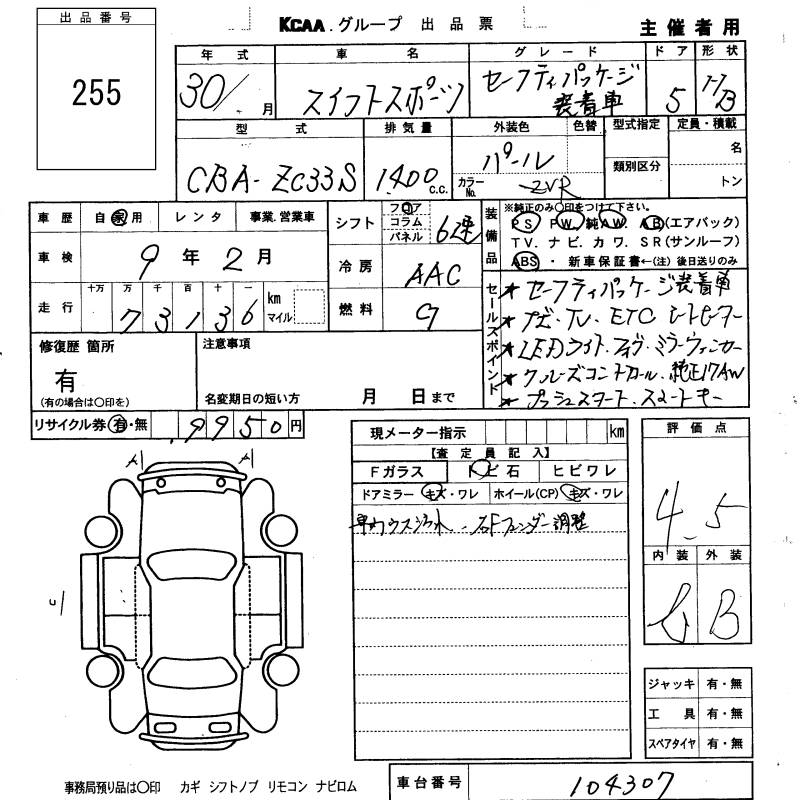 出品番号
255
KCAA.グループ 出品票
主催者用
年式 車名 グレード ドア 形状
30/ 月 スイフトスポーツ セーフティパッケージ装着車 5 H/B
型式 排気量 外装色 色替 型式指定 定員・積載
CBA-ZC33S 1400 C.C. パール 名
カラーNo. ZVR 類別区分 トン
車歴 自家用 レンタ 事業.営業車
シフト フロア コラム パネル 6速
装備品 ※純正のみ〇印をつけて下さい。
PS PW. 純AW. AB(エアバック)
TV. ナビ. カワ. SR(サンルーフ)
ABS・新車保証書←(注)後日送りのみ
車検 9年2月
冷房 AAC
走行 十万 万 千 百 十 一 km マイル
73136
燃料 G
セールスポイント
★セーフティパッケージ装着車
★ナビ・TV・ETC シートヒーター
★LEDライト・フォグ・ミラーウィンカー
★クルーズコントロール・純正17AW
★プッシュスタート・スマートキー
修復歴 箇所
有
(有の場合は〇印を)
注意事項
名変期日の短い方 月 日まで
リサイクル券 有・無 9950円
現メーター指示 km
【査定員記入】
Fガラス トビ石 ヒビワレ
ドアミラー キズ・ワレ ホイール(CP) キズ・ワレ
右Fフェンダー調整
評価点
4.5
内装 外装
B
ジャッキ 有・無
工具 有・無
スペアタイヤ 有・無
A A
U
事務局預り品は〇印 カギ シフトノブ リモコン ナビロム
車台番号 104307